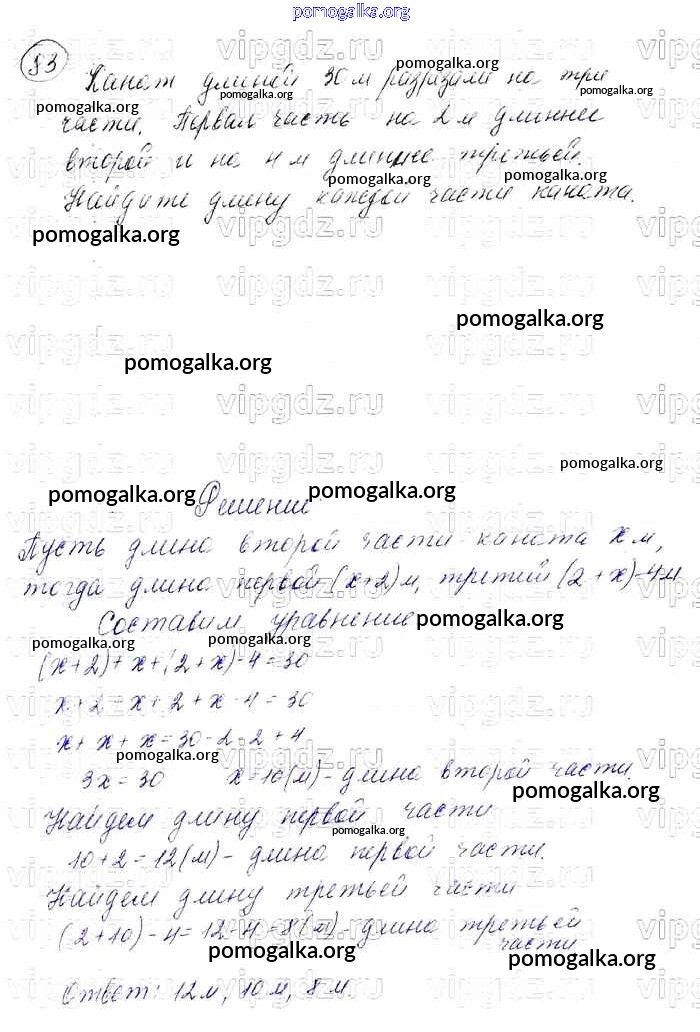 pomogalka.org
83
Канат длиной 30 м разрезали на три
части. Первая часть на 2 м длиннее
второй и на 4 м длиннее третьей.
Найдите длину каждой части каната.
Решение
Пусть длина второй части каната x м,
тогда длина первой (x+2) м, третий (2+x)-4 м
Составим уравнение
(x+2)+x+(2+x)-4=30
x+2+x+2+x-4=30
x+x+x=30-2-2+4
3x=30 x=10(м)- длина второй части.
Найдем длину первой части
10+2=12(м)- длина первой части.
Найдем длину третьей части
(2+10)-4=12-4=8(м)- длина третьей
части
Ответ: 12 м, 10 м, 8 м.